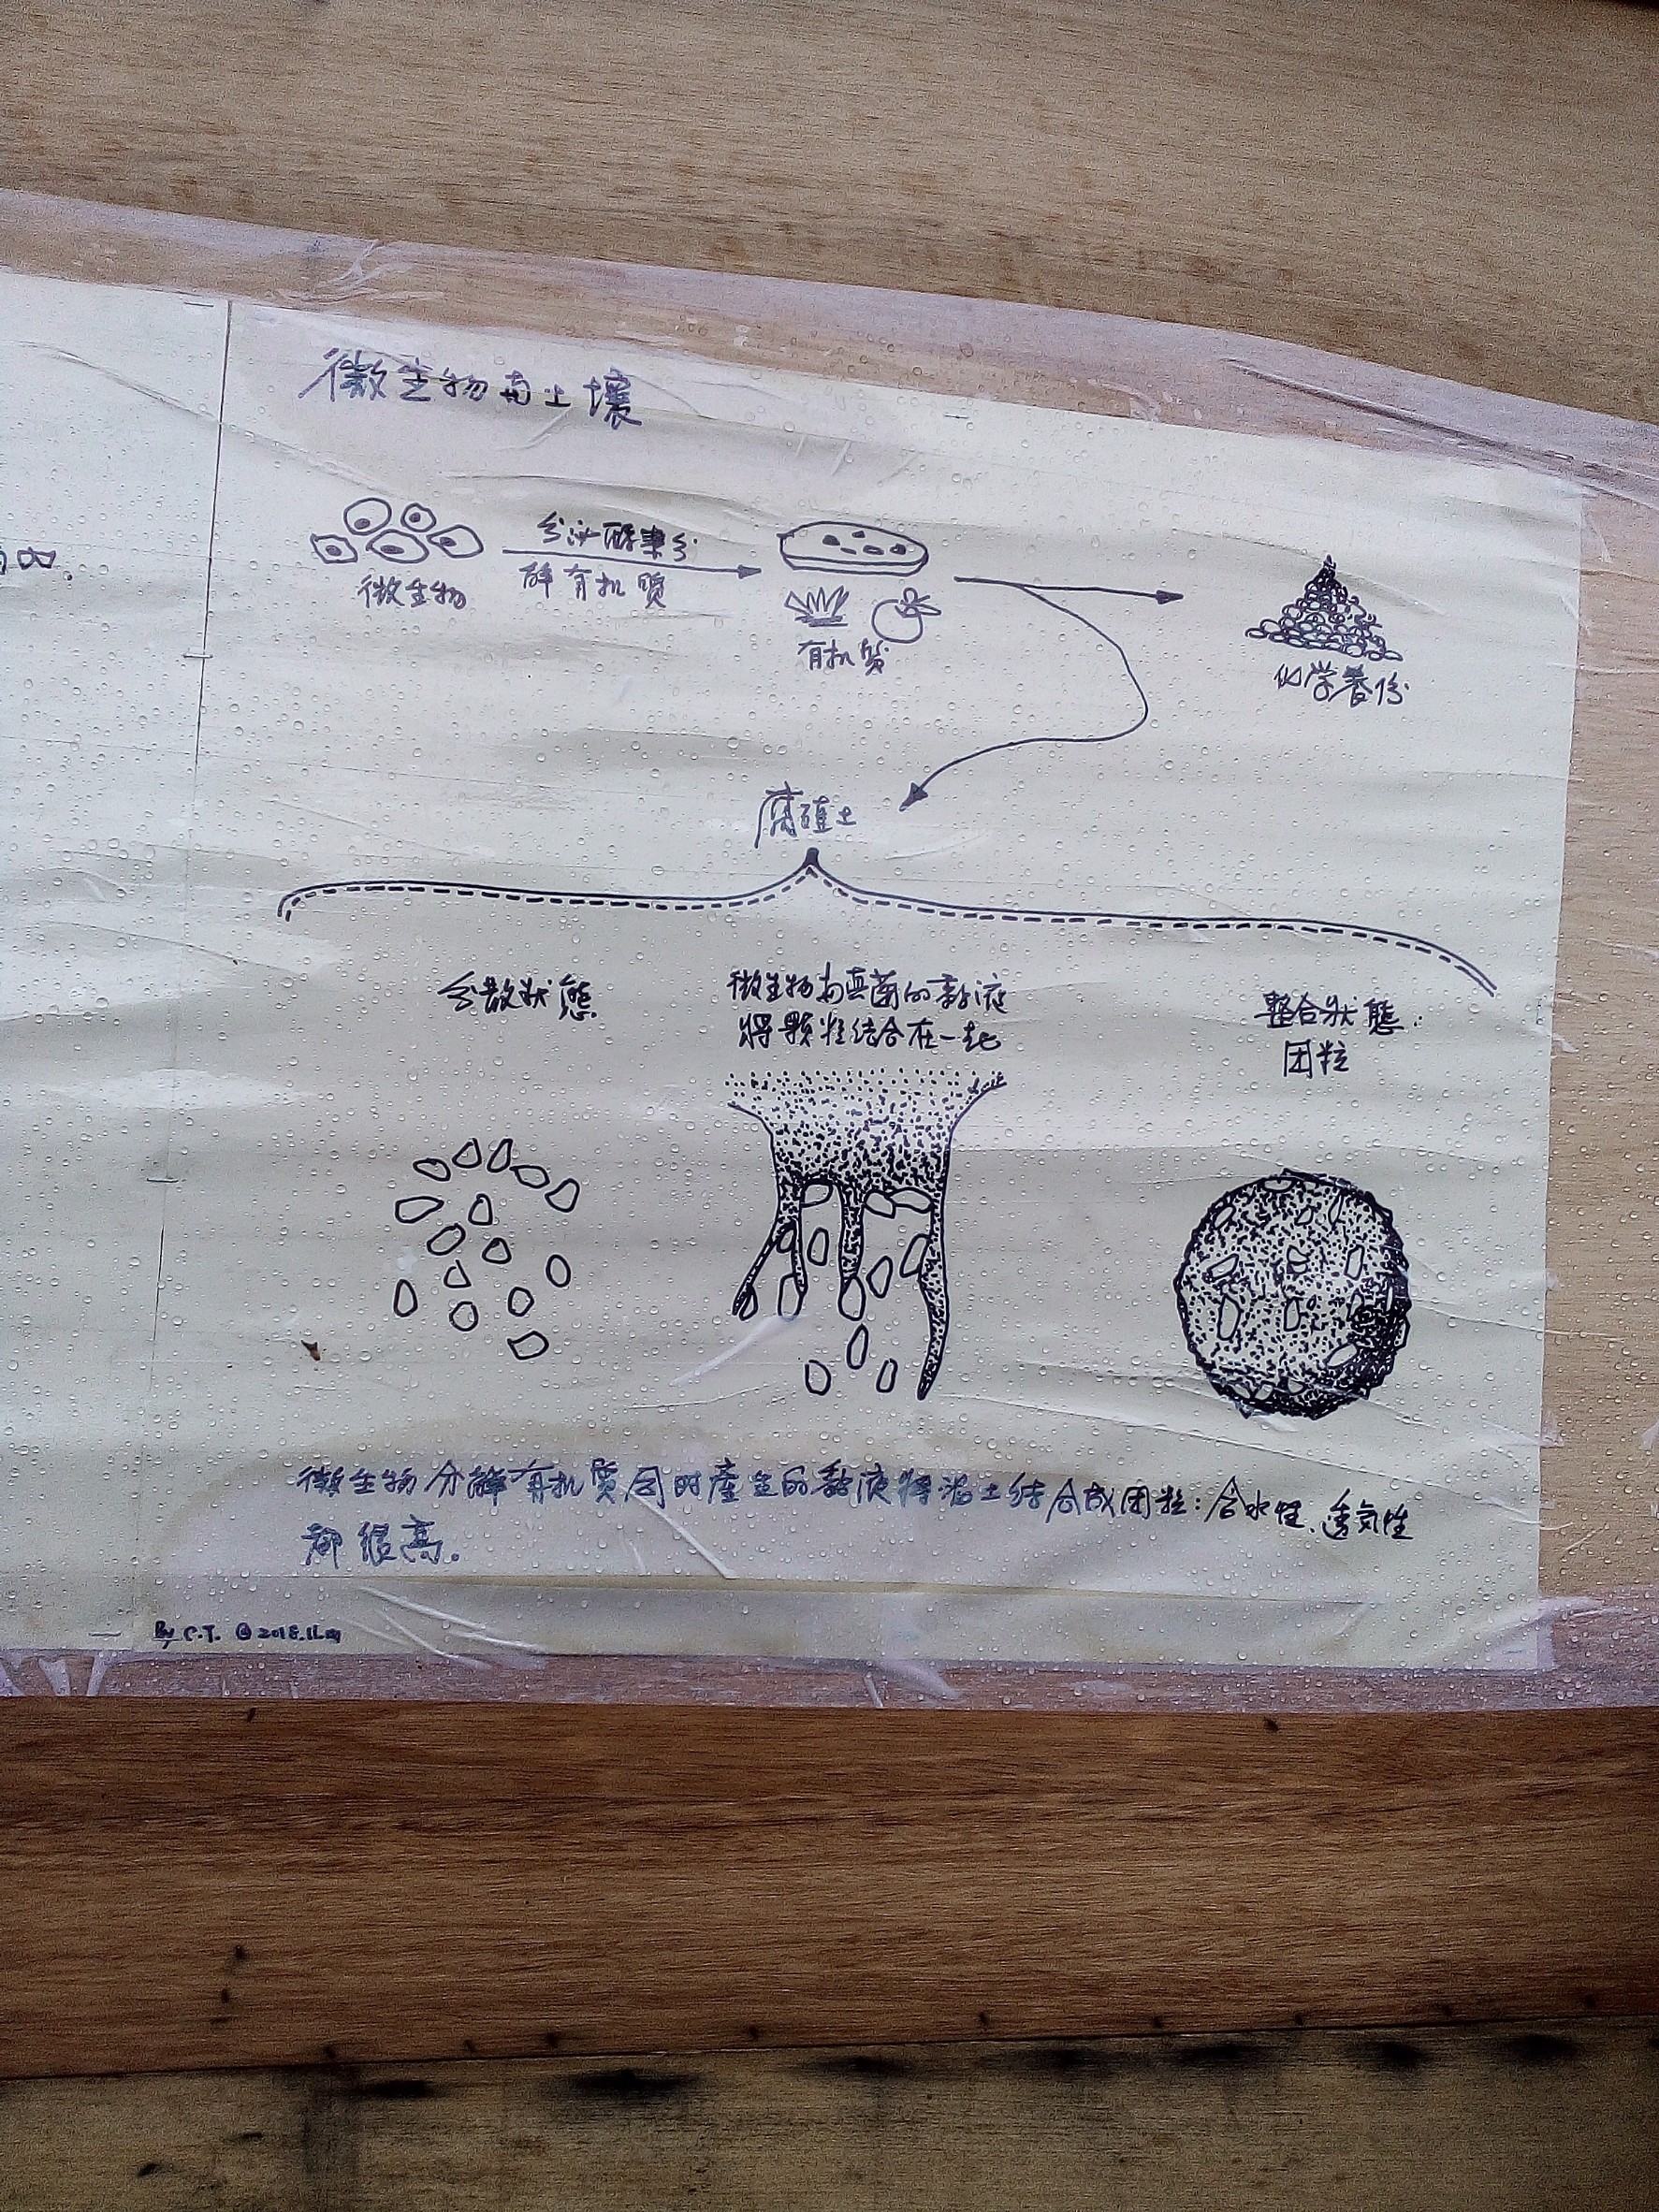 微生物与土壤
微生物
分泌酵素分
解有机质
有机质
化学養份
腐殖土
分散状態
微生物与真菌的黏液
将顆粒结合在一起
整合状態：
团粒
微生物分解有机质同时產生的黏液将黏土结合成团粒：含水性、透気性
都很高。
By C.T. @2018.11.